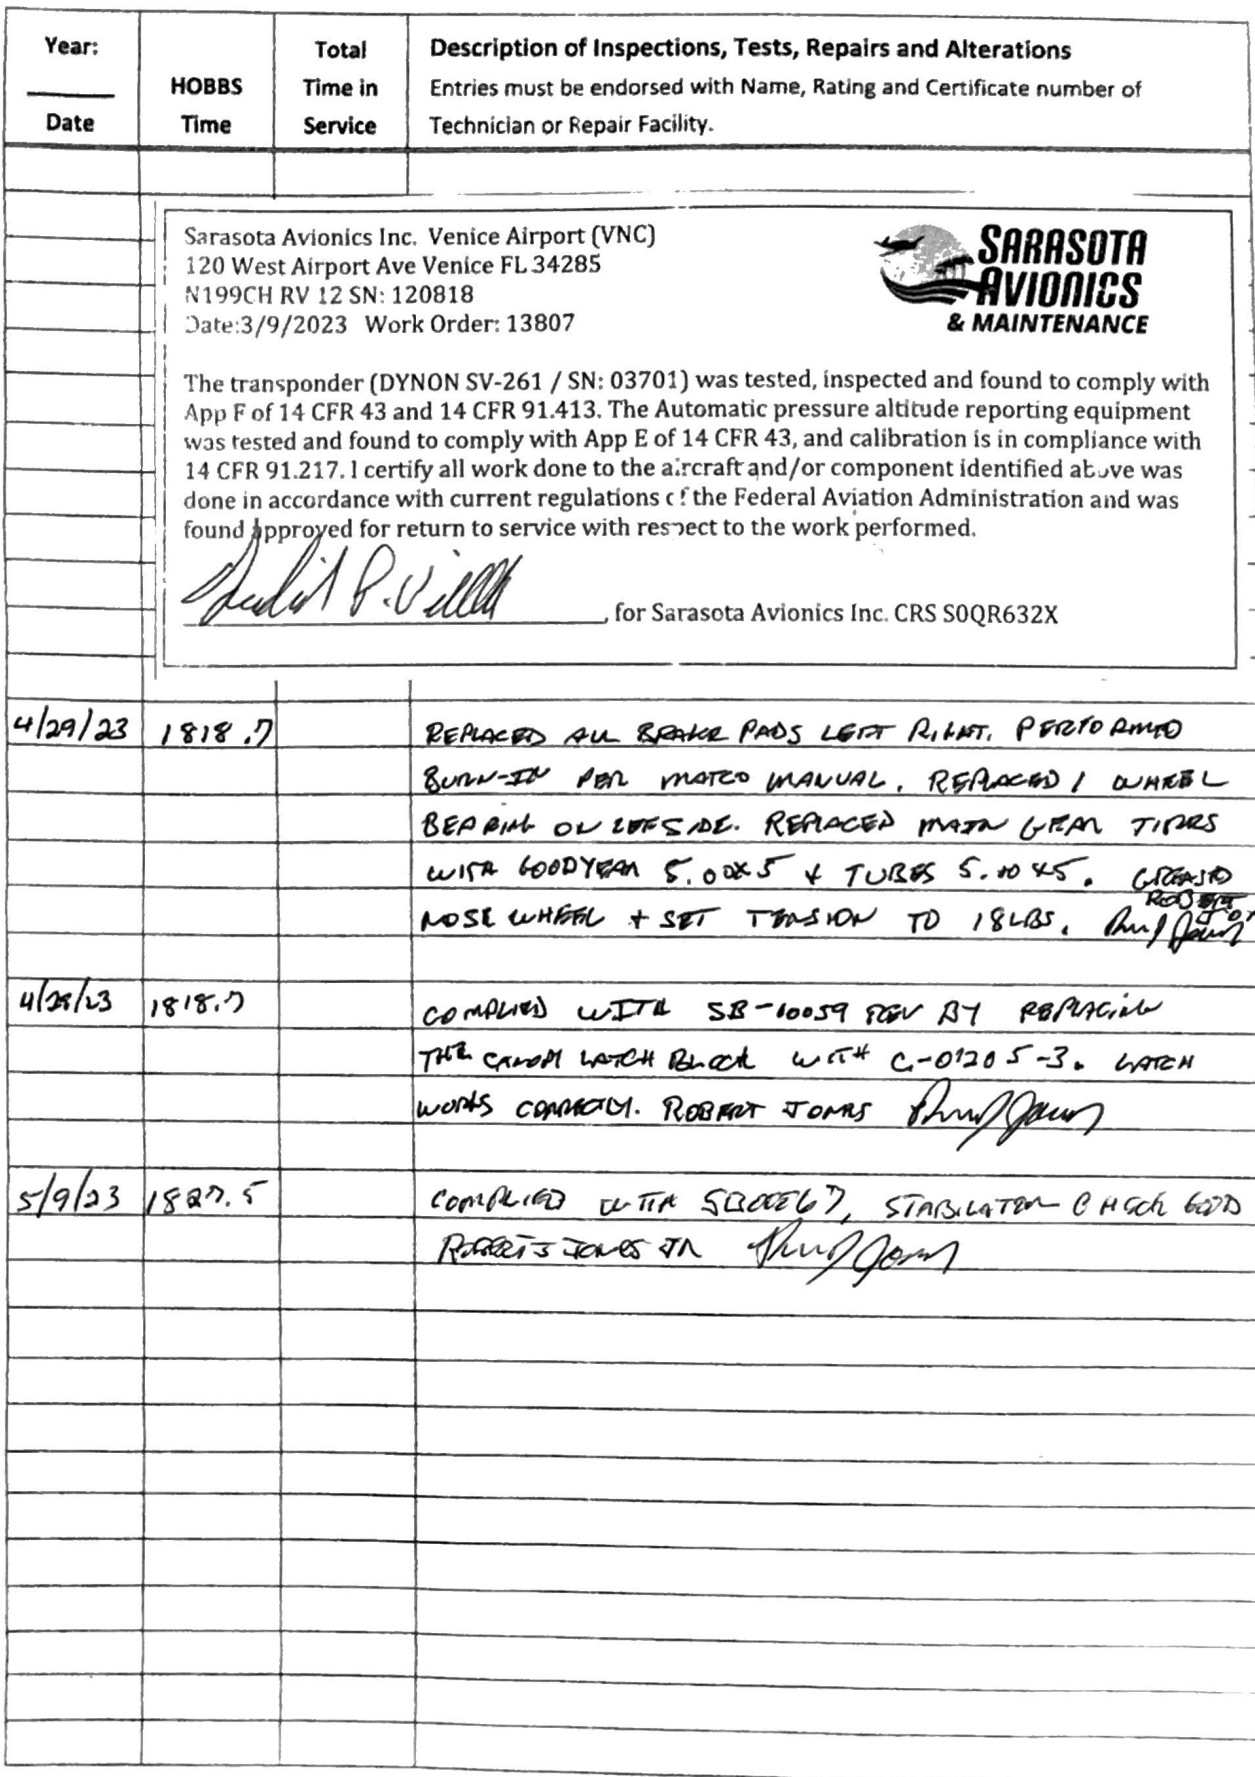 Year:
Date
HOBBS
Time
Total
Time in
Service
Description of Inspections, Tests, Repairs and Alterations
Entries must be endorsed with Name, Rating and Certificate number of
Technician or Repair Facility.
Sarasota Avionics Inc. Venice Airport (VNC)
120 West Airport Ave Venice FL 34285
N199CH RV 12 SN: 120818
Date:3/9/2023 Work Order: 13807
SARASOTA
AVIONICS
& MAINTENANCE
The transponder (DYNON SV-261 / SN: 03701) was tested, inspected and found to comply with
App F of 14 CFR 43 and 14 CFR 91.413. The Automatic pressure altitude reporting equipment
was tested and found to comply with App E of 14 CFR 43, and calibration is in compliance with
14 CFR 91.217. I certify all work done to the aircraft and/or component identified above was
done in accordance with current regulations of the Federal Aviation Administration and was
found approved for return to service with respect to the work performed.
, for Sarasota Avionics Inc. CRS S0QR632X
4/29/23 1818.7 REPLACED ALL BRAKE PADS LEFT RIGHT. PERFORMED
BURN-IN PER MATCO MANUAL. REPLACED 1 WHEEL
BEARING ON LEFT SIDE. REPLACED MAIN GEAR TIRES
WITH GOODYEAR 5.00X5 & TUBES 5.00X5. GREASED
NOSE WHEEL + SET TENSION TO 18LBS. ROBERT
4/28/23 1818.7 COMPLIED WITH SB-10059 REV BY REPLACING
THE CANOPY LATCH BLOCK WITH C-01205-3. LATCH
WORKS CORRECTLY. ROBERT JONES
5/9/23 1827.5 COMPLIED WITH STABILATOR CHECK GOOD
ROBERT J JONES JR